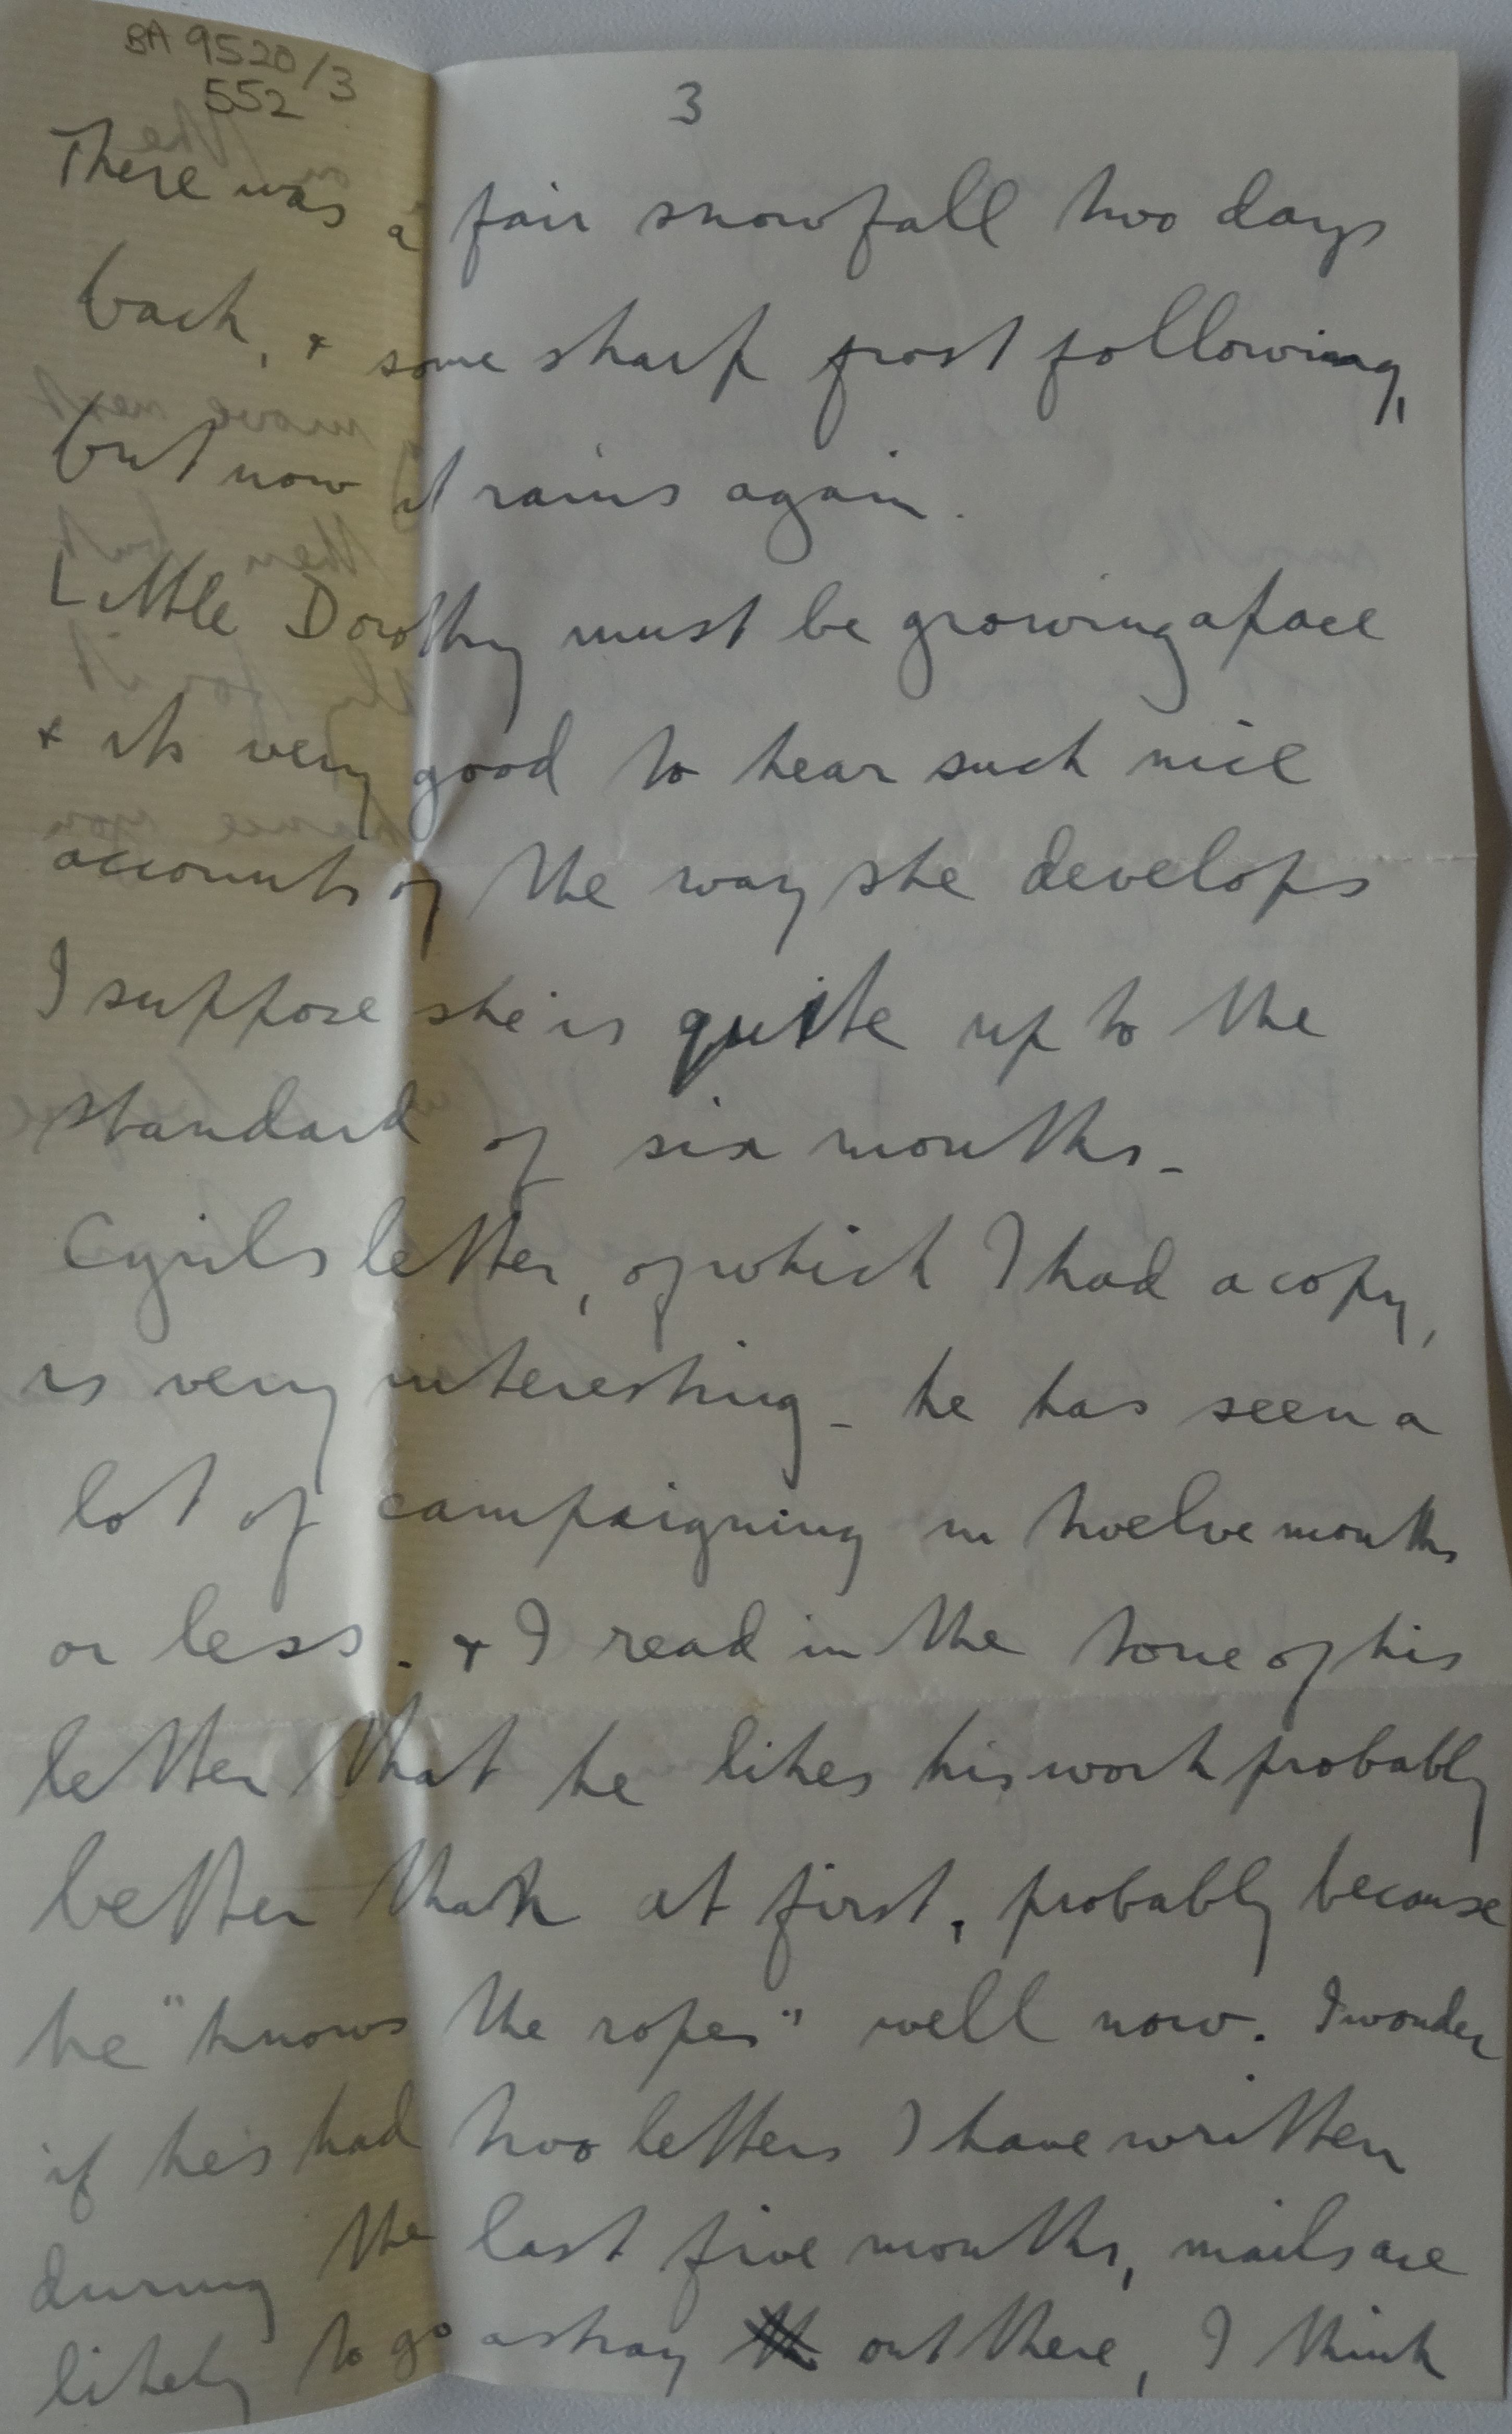 BA 9520/3
552
3
There was a fair snowfall two days
back, & some sharp frost following,
but now it rains again.
Little Dorothy must be growing apace
& its very good to hear such nice
accounts of the way she develops
I suppose she is quite up to the
standard of six months -
Cyrils letter, of which I had a copy,
is very interesting - he has seen a
lot of campaigning in twelve months
or less. & I read in the tone of his
letter that he likes his work probably
better than at first, probably because
he "knows the ropes" well now. I wonder
if he's had two letters I have written
during the last five months, mails are
likely to go astray out there, I think